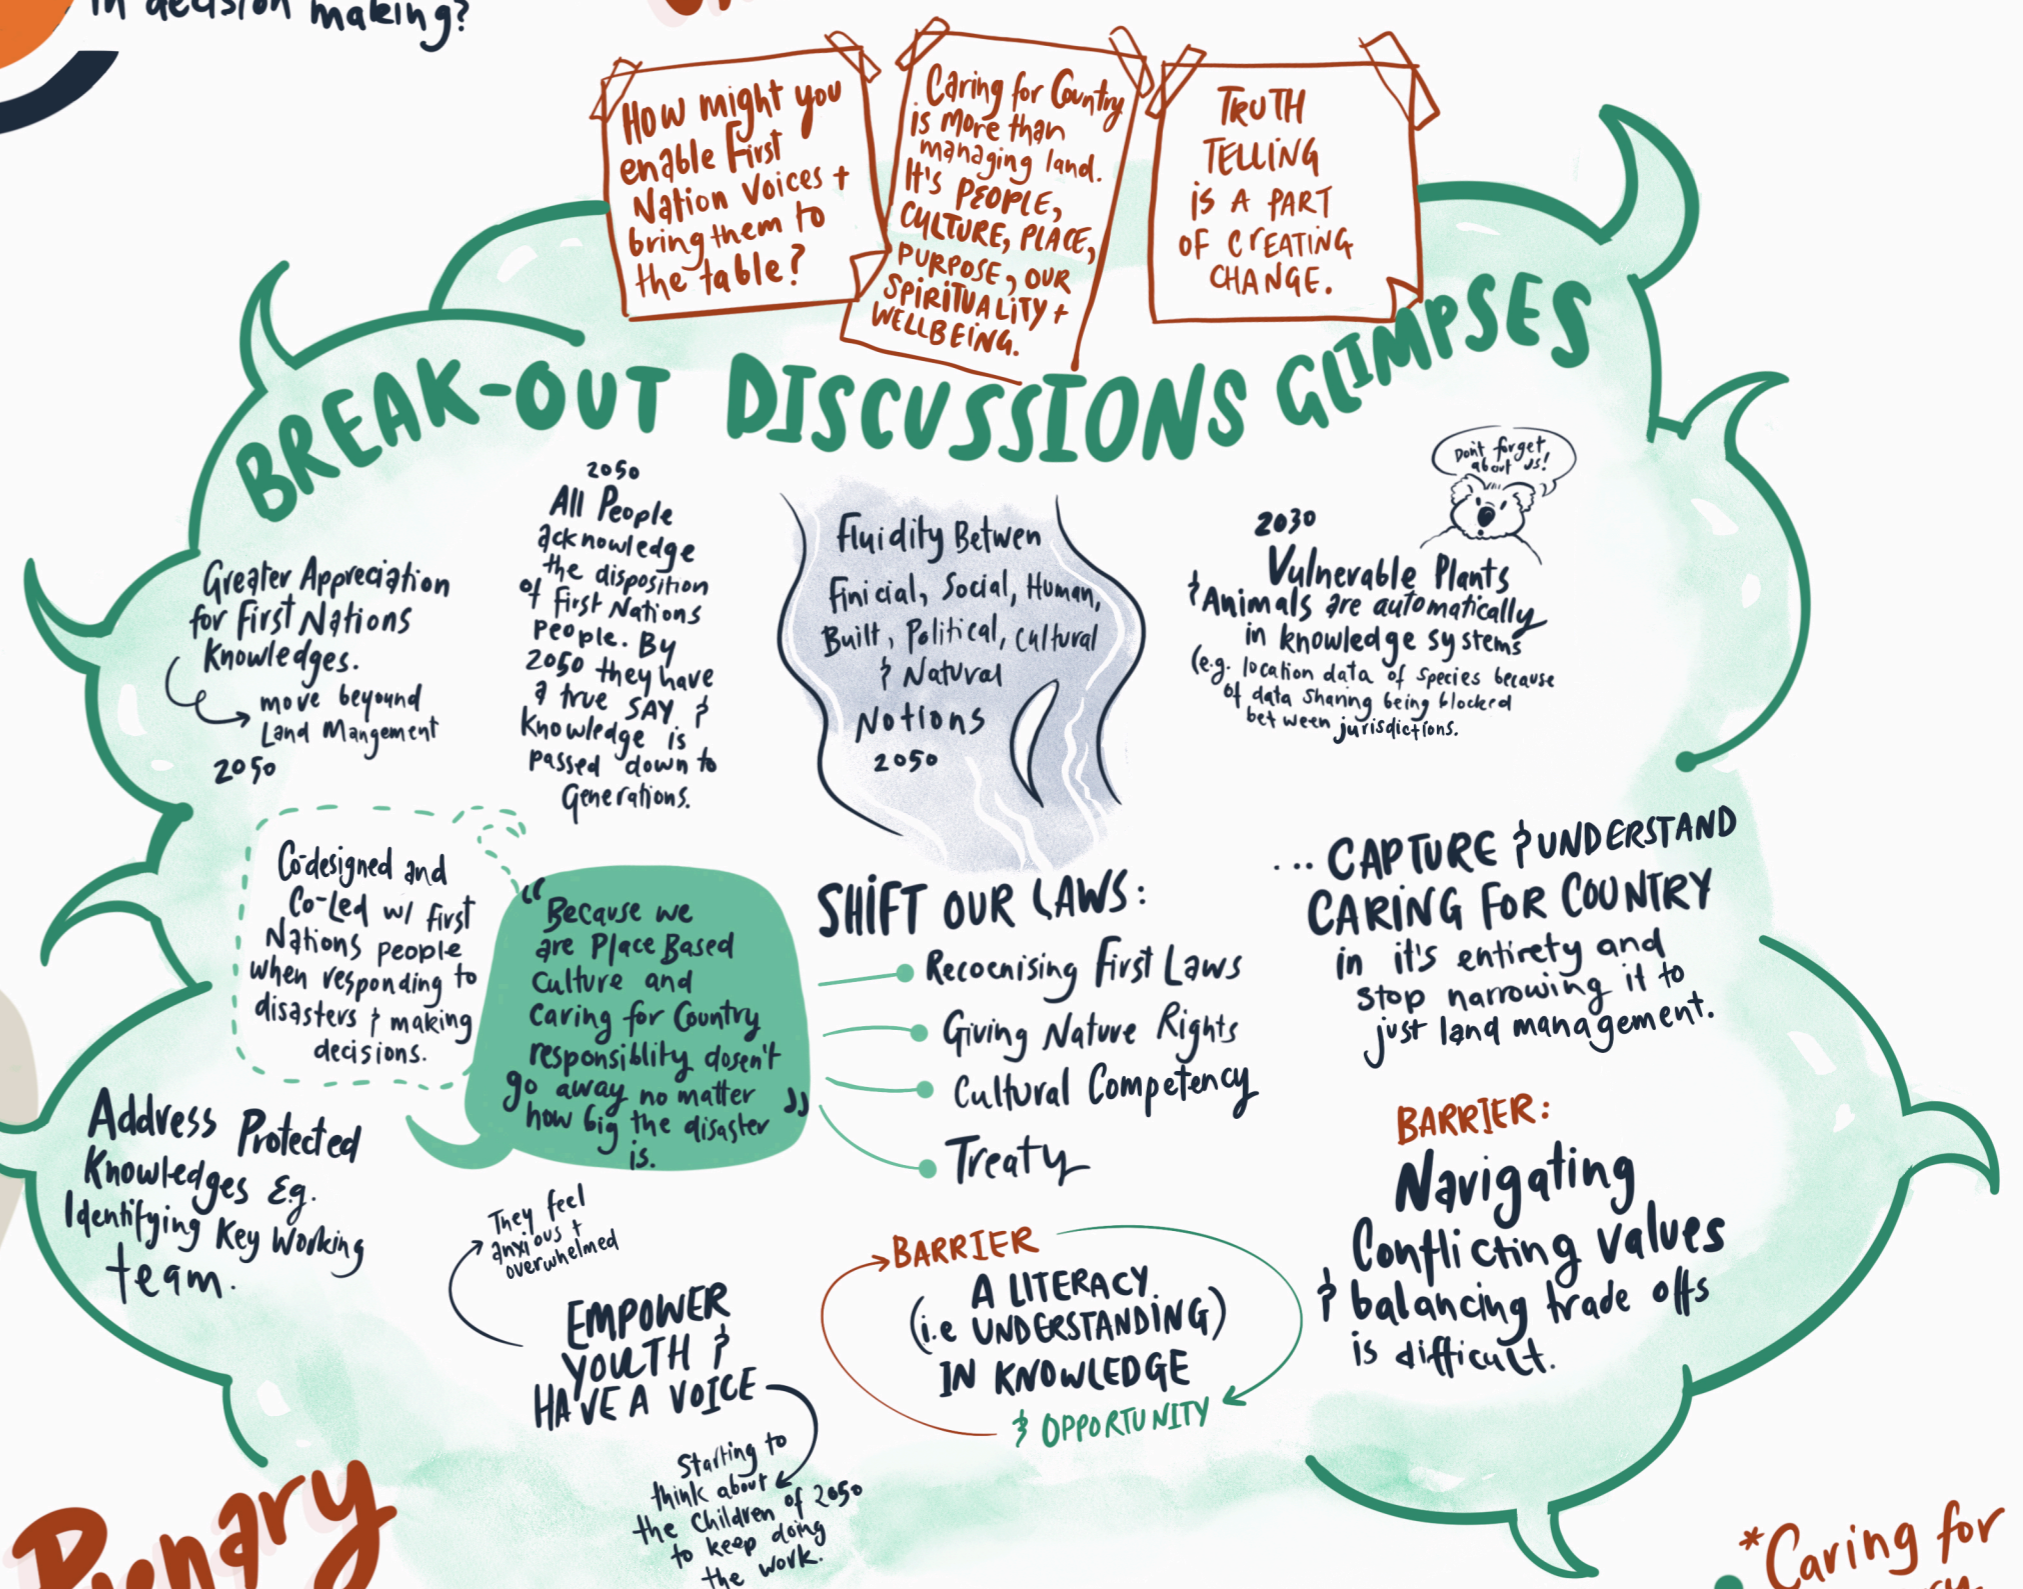 in decision making?
How might you
enable First
Nation Voices +
bring them to
the table?
Caring for Country
is More than
managing land.
It's PEOPLE,
CULTURE, PLACE,
PURPOSE, OUR
SPIRITUALITY +
WELLBEING.
TRUTH
TELLING
IS A PART
OF CREATING
CHANGE.
BREAK-OUT DISCUSSIONS GLIMPSES
Greater Appreciation
for First Nations
Knowledges.
move beyound
Land Mangement
2050
2050
All People
acknowledge
the disposition
of First Nations
People. By
2050 they have
a true SAY &
Knowledge is
passed down to
Generations.
Fluidity Betwen
Finicial, Social, Human,
Built, Political, Cultural
& Natural
Notions
2050
Don't forget
about us!
2030
Vulnerable Plants
& Animals are automatically
in knowledge systems
(e.g. location data of species because
of data sharing being blocked
between jurisdictions.
Co-designed and
Co-Led w/ First
Nations people
when responding to
disasters & making
decisions.
"Because we
are Place Based
Culture and
Caring for Country
responsiblity dosen't
go away no matter
how big the disaster
is."
SHIFT OUR LAWS:
Recocnising First Laws
Giving Nature Rights
Cultural Competency
Treaty
... CAPTURE & UNDERSTAND
CARING FOR COUNTRY
in it's entirety and
stop narrowing it to
just land management.
Address Protected
Knowledges Eg.
Identifying Key Working
team.
They feel
anxious +
overwhelmed
EMPOWER
YOUTH &
HAVE A VOICE
Starting to
think about
the Children of 2050
to keep doing
the work.
BARRIER
A LITERACY
(i.e UNDERSTANDING)
IN KNOWLEDGE
& OPPORTUNITY
BARRIER:
Navigating
Conflicting values
& balancing trade offs
is difficult.
Plenary
*Caring for